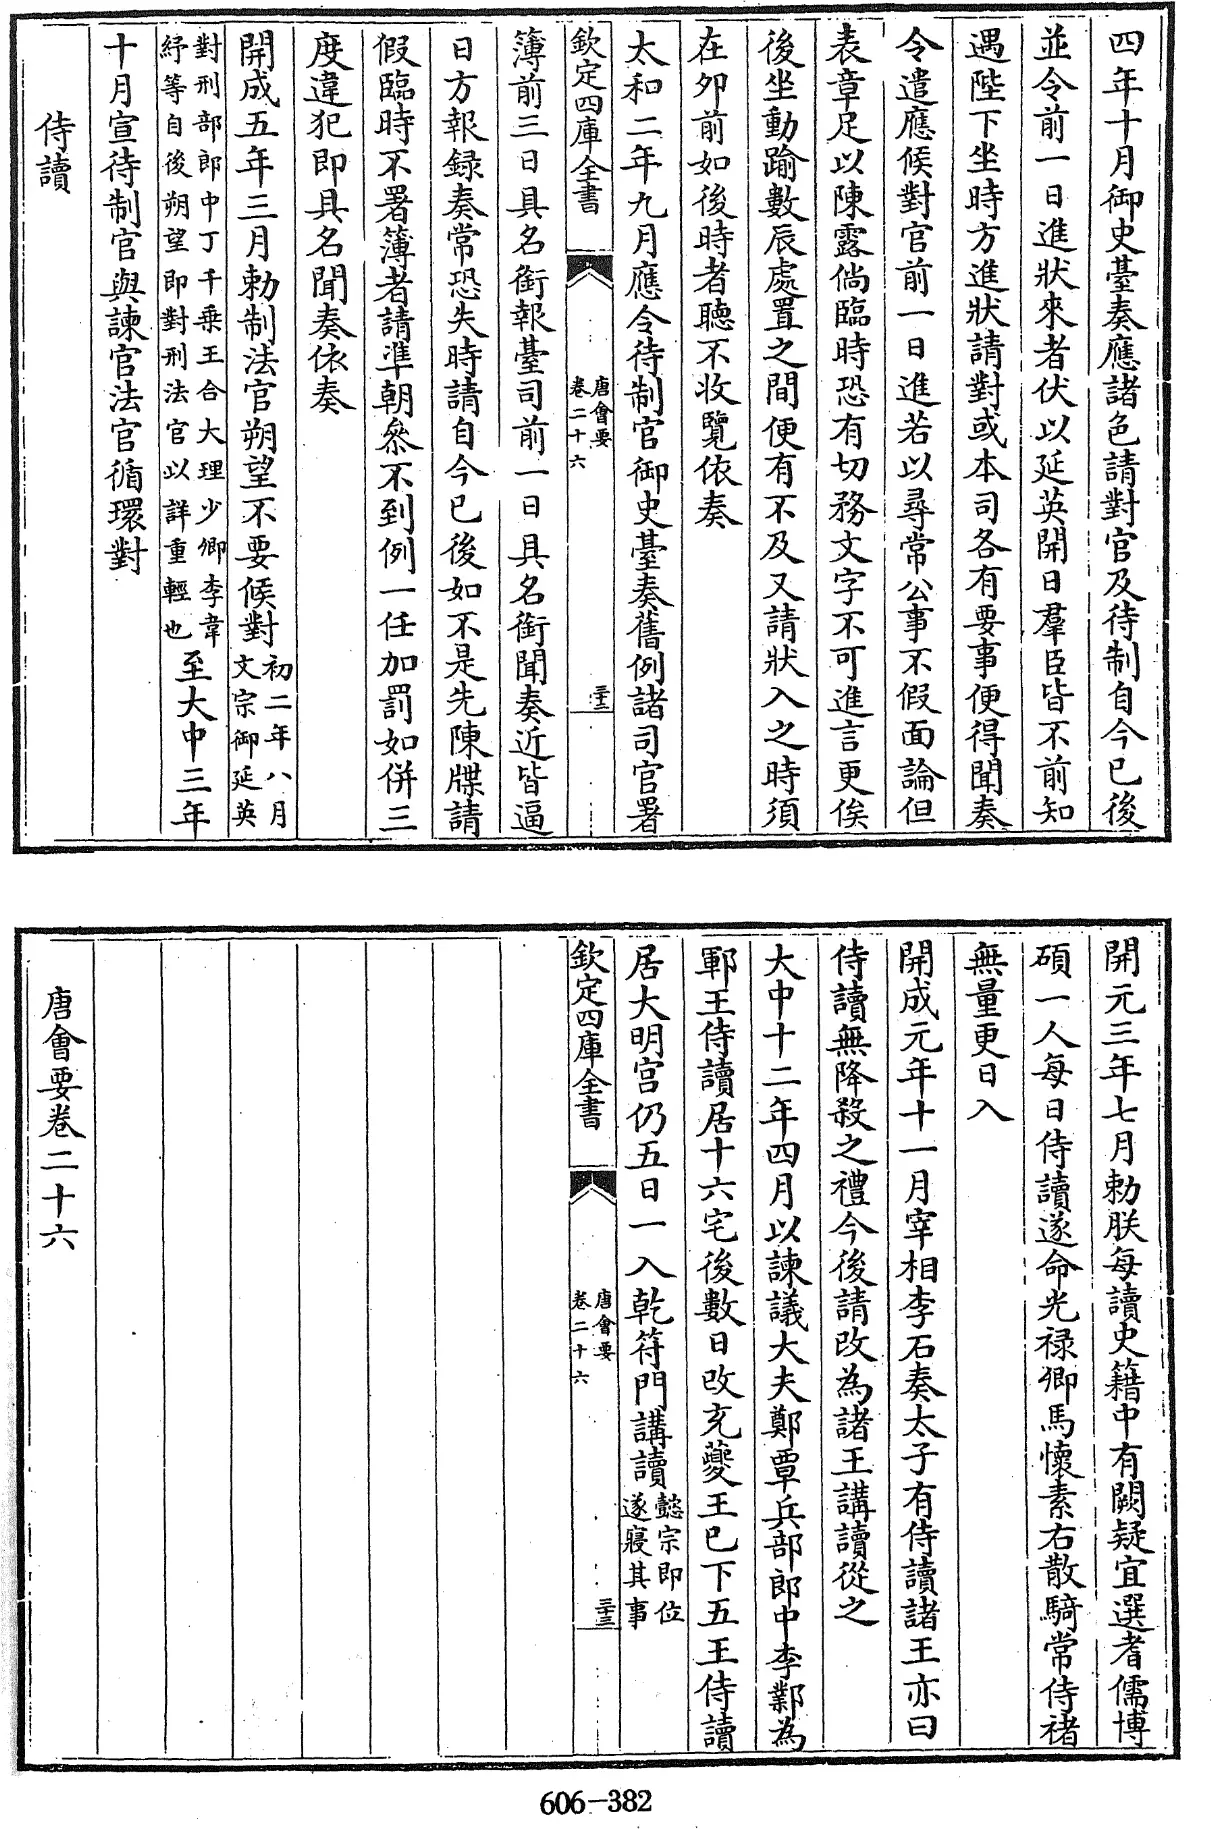 四年十月御史臺奏應諸色請對官及待制自今已後
並令前一日進狀來者伏以延英開日羣臣皆不前知
遇陛下坐時方進狀請對或本司各有要事便得聞奏
令遣應候對官前一日進若以尋常公事不假面論但
表章足以陳露倘臨時恐有切務文字不可進言更俟
後坐動踰數辰處置之間便有不及又請狀入之時須
在夘前如後時者聽不收覽依奏
太和二年九月應令待制官御史臺奏舊例諸司官署
欽定四庫全書
唐會要
卷二十六
三十三
簿前三日具名銜報臺司前一日具名銜聞奏近皆逼
日方報録奏常恐失時請自今已後如不是先陳牒請
假臨時不署簿者請準朝叅不到例一任加罰如併三
度違犯即具名聞奏依奏
開成五年三月勅制法官朔望不要候對
初二年八月
文宗御延英
對刑部郎中丁千乗王合大理少卿李韋
紓等自後朔望即對刑法官以詳重輕也
至大中三年
十月宣待制官與諫官法官循環對
侍讀
開元三年七月勅朕每讀史籍中有闕疑宜選耆儒博
碩一人每日侍讀遂命光禄卿馬懷素右散騎常侍褚
無量更日入
開成元年十一月宰相李石奏太子有侍讀諸王亦曰
侍讀無降殺之禮今後請改為諸王講讀從之
大中十二年四月以諫議大夫鄭覃兵部郎中李鄴為
鄆王侍讀居十六宅後數日改充夔王已下五王侍讀
居大明宫仍五日一入乾符門講讀
懿宗即位
遂寢其事
欽定四庫全書
唐會要
卷二十六
三十三
唐會要卷二十六
606-382